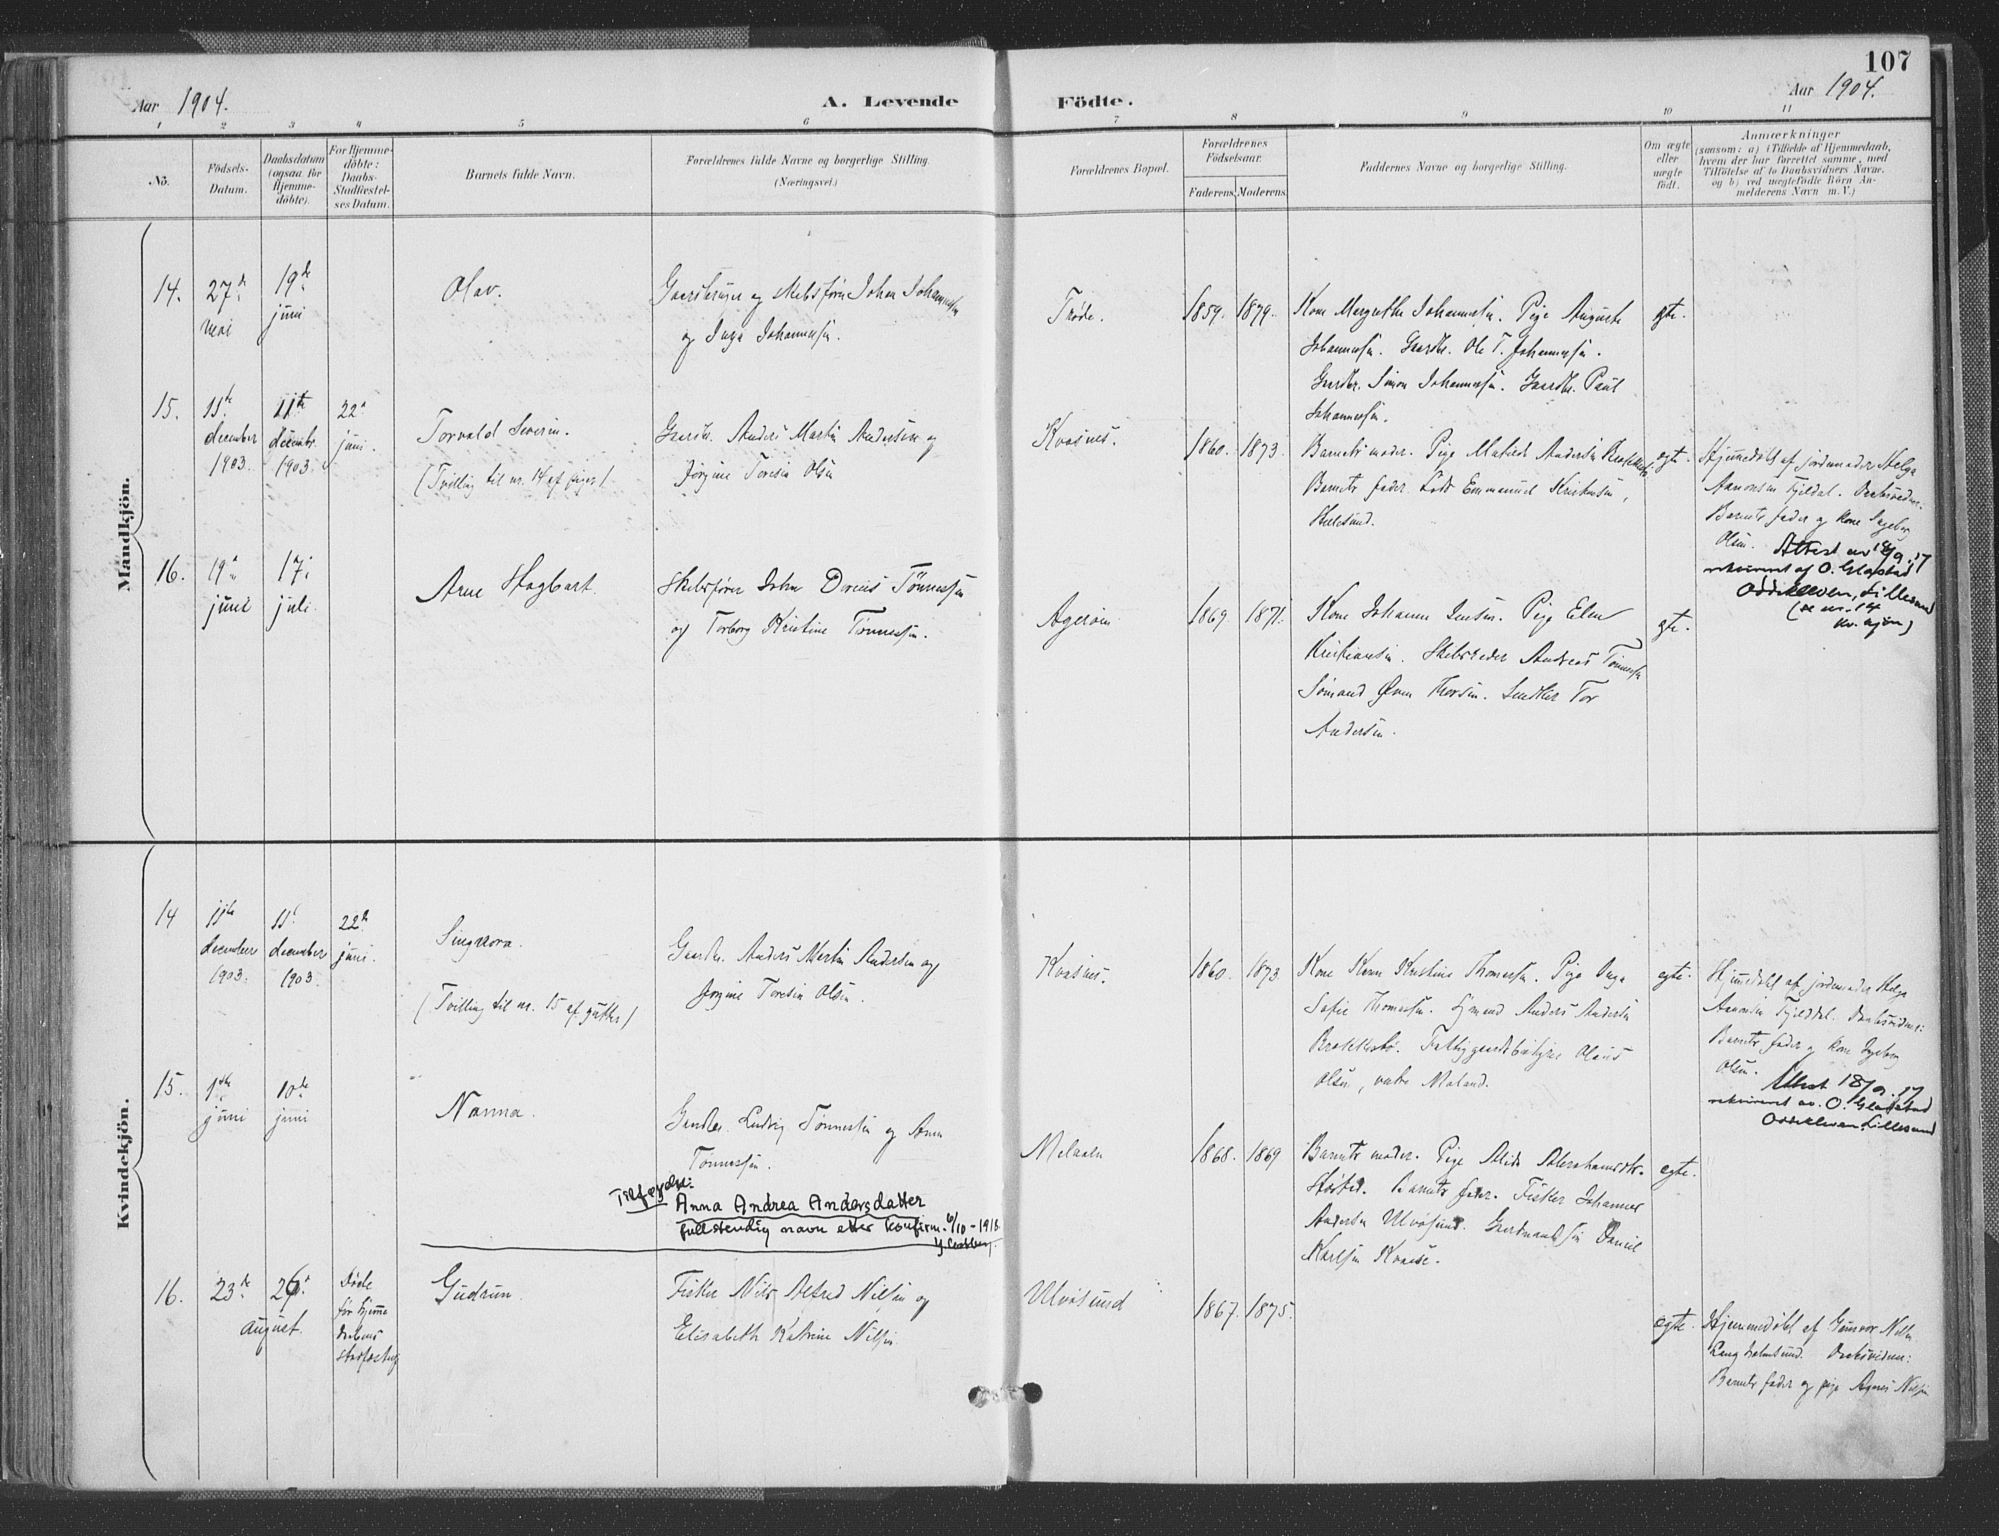 107
Aar 1904.
A. Levende Födte.
Aar 1904.
1 2 3 4 5 6 7 8 9 10 11
No.
Födsels-
Datum.
Daabsdatum
(ogsaa for
Hjemme-
döbte).
For Hjemme-
döbte:
Daabs-
Stadfæstel-
ses Datum.
Barnets fulde Navn.
Forældrenes fulde Navne og borgerlige Stilling.
(Næringsvei.)
Forældrenes Bopæl.
Forældrenes
Födselsaar.
Faderens. Moderens.
Faddernes Navne og borgerlige Stilling.
Om ægte
eller
uægte
födt.
Anmærkninger
(saasom: a) i Tilfælde af Hjemmedaab,
hvem der har forrettet samme, med
Tilföielse af to Daabsvidners Navne,
og b) ved uægtefödte Börn An-
melderens Navn m. V.)
Mandkjön.
14.
27de
mai
19de
juni
Olav.
Gaardbruger og Skibsfører Johan Johannessen
og Inga Johannessen.
Trøde.
1859. 1879.
Kone Margrethe Johannessen. Pige Auguste
Johannessen. Gaardbr. Ole T. Johannessen.
Gaardbr. Simon Johannessen. Gaardbr. Paul
Johannessen.
egte.
15.
11te
december
1903.
11te
decembr.
1903.
22de
juni.
Torvald Severin.
(Tvilling til nr. 14 af piger)
Gaardbr. Anders Martin Andersen og
Jørgine Toresen Olsen
Kvasnes.
1860. 1873.
Barnets moder. Pige Matilde Andersen Brekkestø
Barnets fader. Lods Emmanuel Kristensen,
Ulvøsund.
egte.
Hjemmedøbt af jordemoder Helga
Aanonsen Fjeldal. Daabsvidner:
Barnets fader og kone Ingeborg
Olsen. Attest av 18/9.17
rekvireret af O. Glastad
Oddekleven, Lillesand
(se nr. 14
kv. kjøn)
16.
19de
juni
17de
juli.
Arne Hagbart.
Skibsfører John Dorius Tønnessen
og Torborg Kristine Tønnessen.
Agerøen
1869. 1871.
Kone Johanne Jensen. Pige Elen
Kristiansen. Skibsreder Andreas Tønnessen
Sømand Øven Thorsen. Snedker Tor
Andersen.
egte.
Kvindekjön.
14
11te
december
1903.
11te
december
1903.
22de
juni.
Singnora.
(Tvilling til nr. 15 af gutter)
Gaardbr. Anders Martin Andersen og
Jørgine Toresen Olsen.
Kvasnes.
1860. 1873
Kone Karen Kristine Thomassen. Pige Inga
Sofie Thomassen. Sømand Anders Andersen
Brekkestø. Fattiggaardsbestyrer Olaus
Olsen, vestre Moland.
egte.
Hjemmedøbt af jordemoder Helga
Aanonsen Fjelddal. Daabsvidner:
Barnets fader og kone Ingeborg
Olsen. Attest 18/9.17
rekvireret av. O. Glastad
Oddekleven. Lillesand
15.
1ste
juni
10de
juni
Nanna.
Gaardbr. Ludvig Tønnessen og Anna
Tønnessen.
Melaaen
1868. 1869
Barnets moder. Pige Alida Abrahamsdtr.
Barnets fader. Fisker Johannes
Andersen Ulvøsund. Gaardmandssøn Daniel
Karlsen Kvaase.
egte.
Tilføyelse:
Anna Andrea Andersdatter
fullstendig navn etter konfirm. 6/10-1918.
16.
23de
26de
august.
Døde
før Hjemme
daabens
stadfæstelse
Gudrun.
Fisker Nils Alfred Nilsen og
Elisabeth Katrine Nilsen.
Ulvøsund
1867. 1875.
egte.
Hjemmedøbt af Gunvor Nilsen
Daabsvidner:
Barnets fader og pige Agnes Nilsen